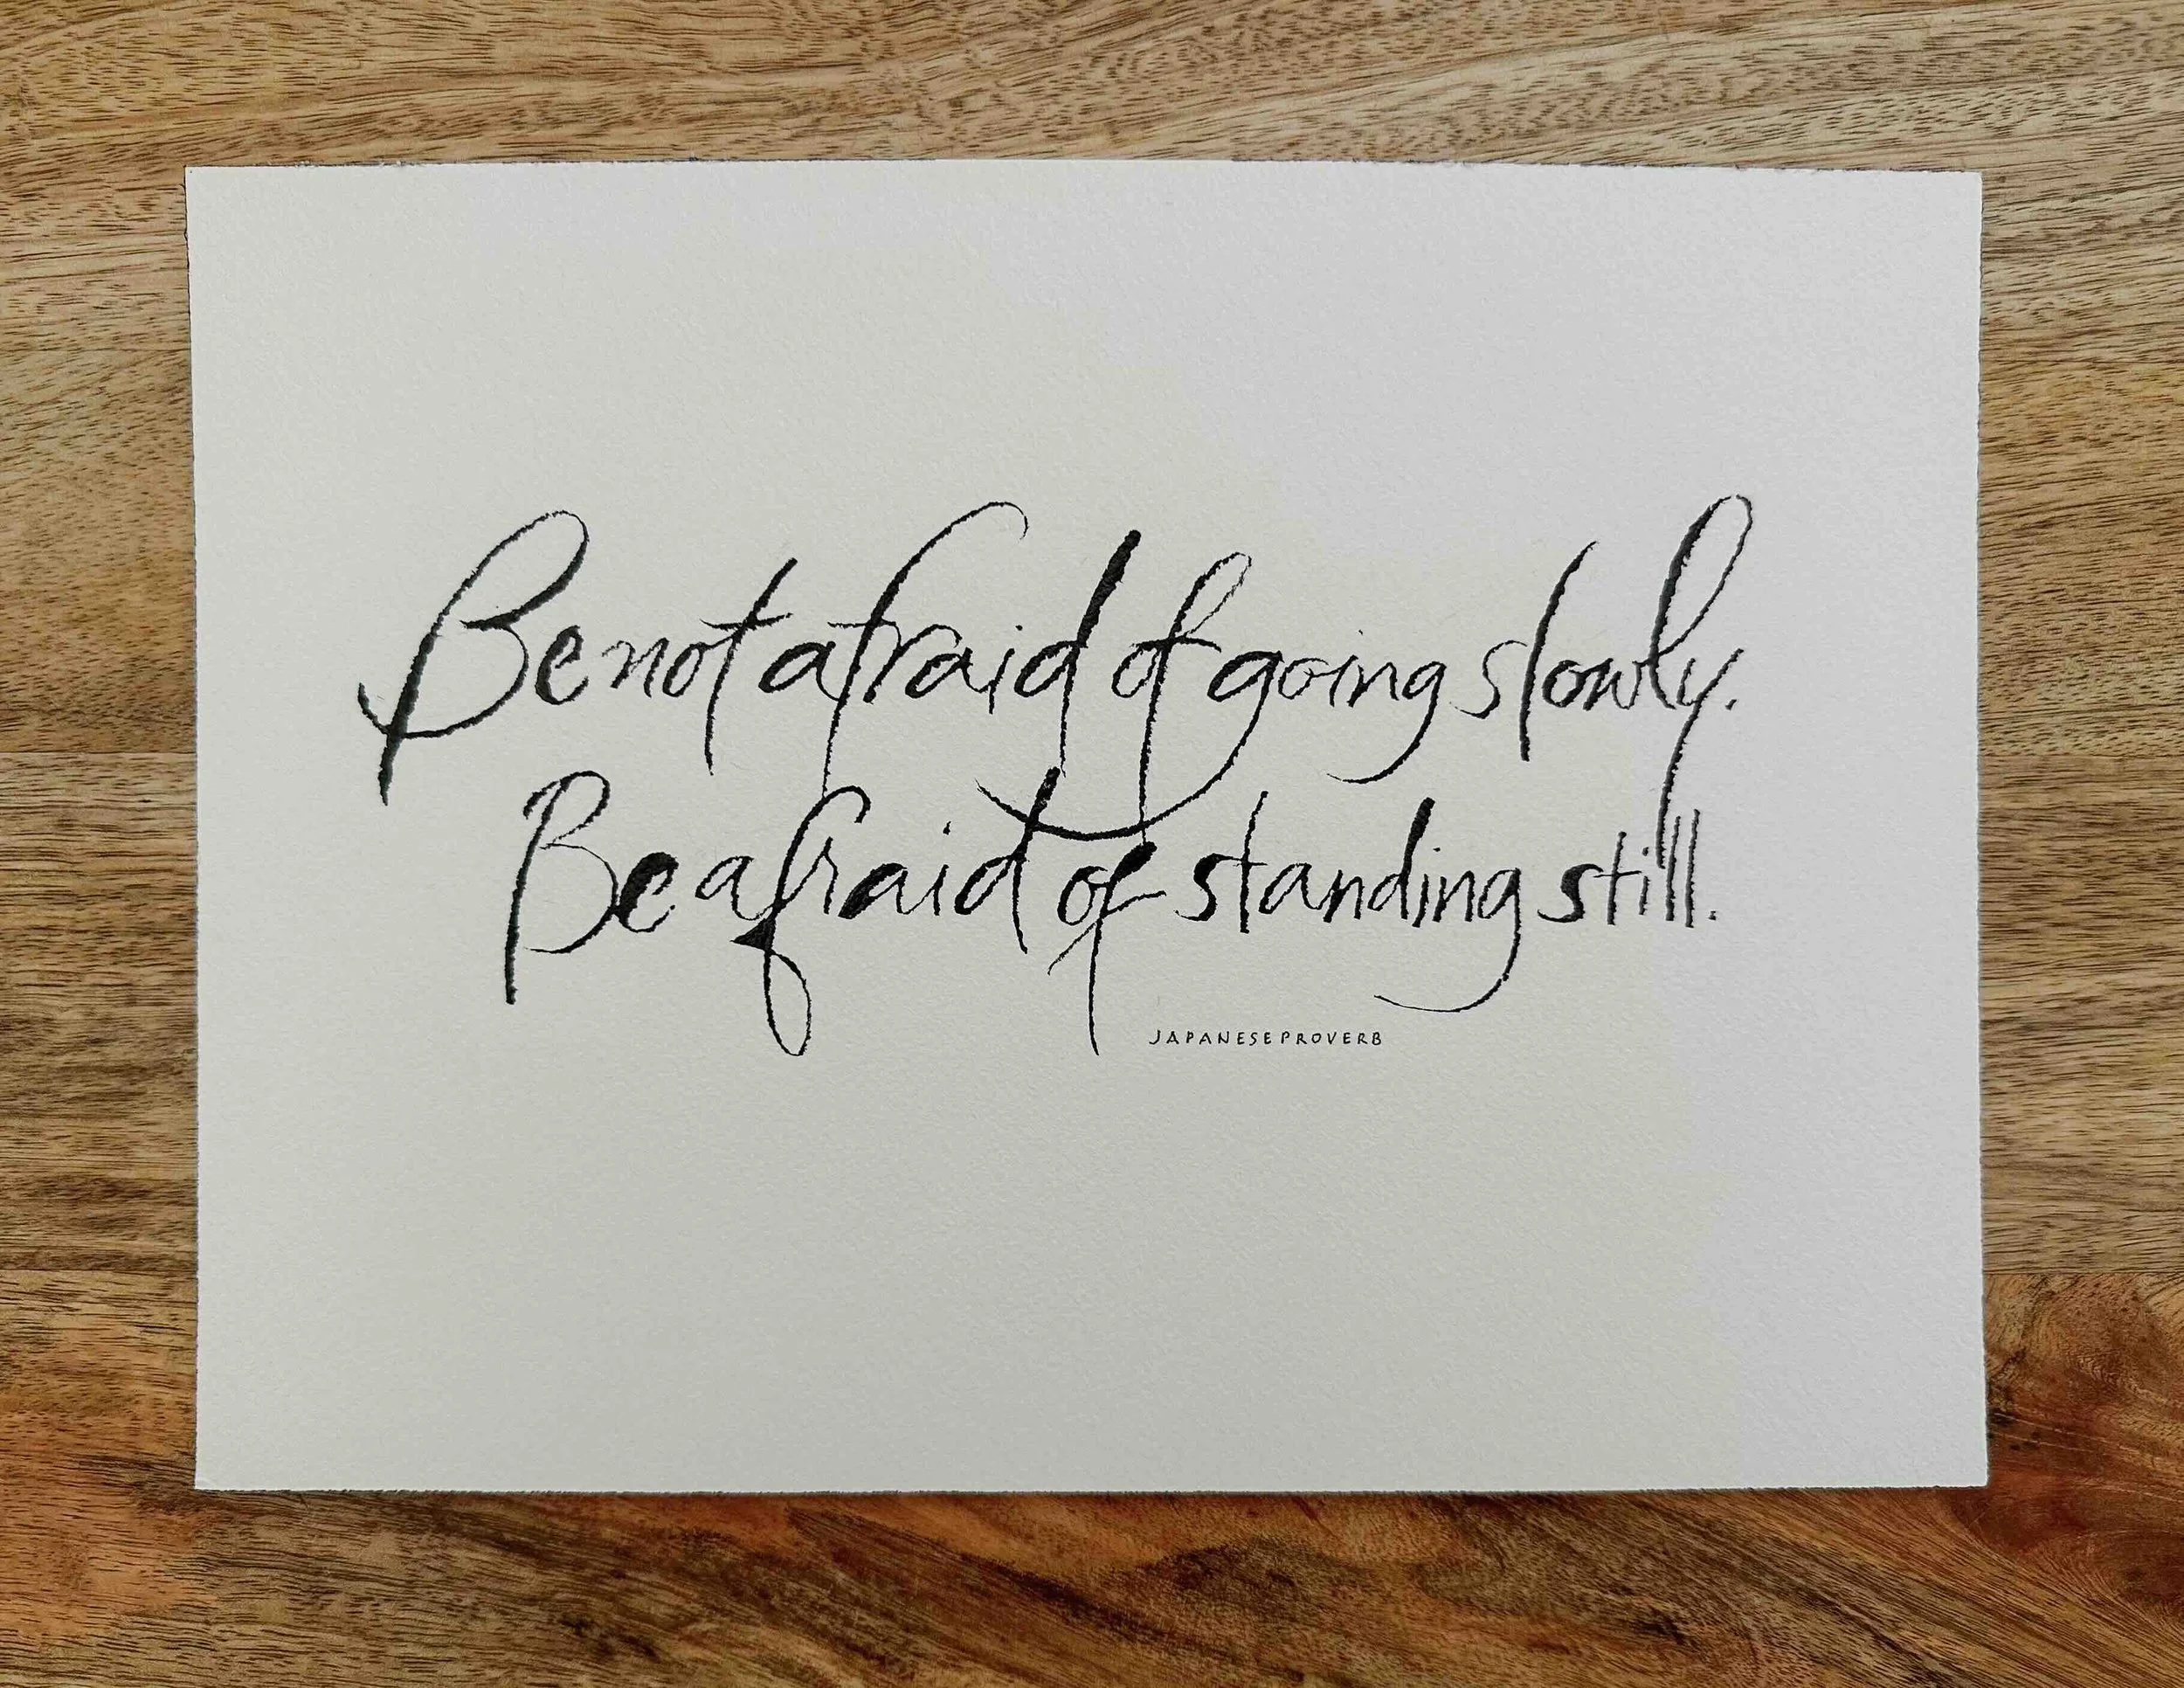 Be not afraid of going slowly.
Be afraid of standing still.
JAPANESE PROVERB